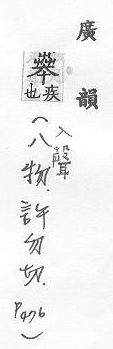 廣韻
入聲
𠦪
疾也
（八物.許勿切.P476）